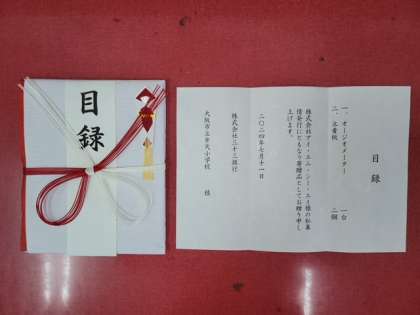 目録
目録
一、オージオメーター 一台
二、立看板 二個
株式会社アイ・エム・シー・ユー様の私募
債発行にともなう寄贈品としてお贈り申し
上げます。
二〇二四年七月十一日
株式会社三十三銀行
大阪市立 小学校 様